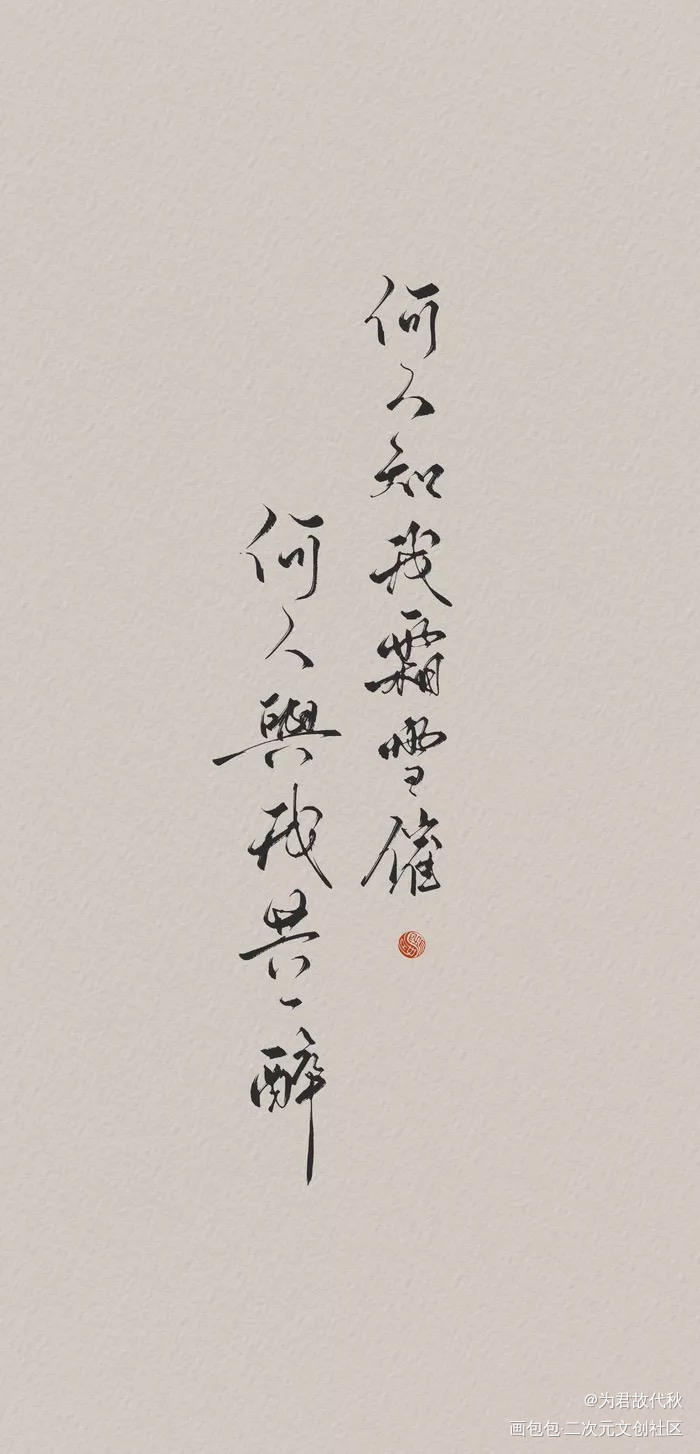 何人知我霜雪催
何人與我共一醉
@为君故代秋
画包包·二次元文创社区